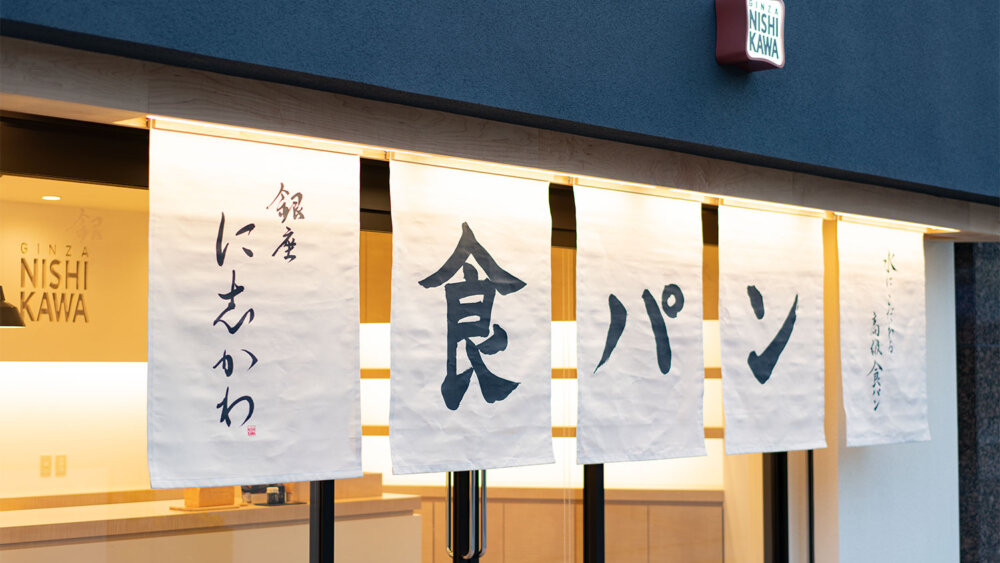 GINZA
NISHI
KAWA
GINZA
NISHI
KAWA
銀座
に志かわ
食パン
水にこだわる
高級食パン